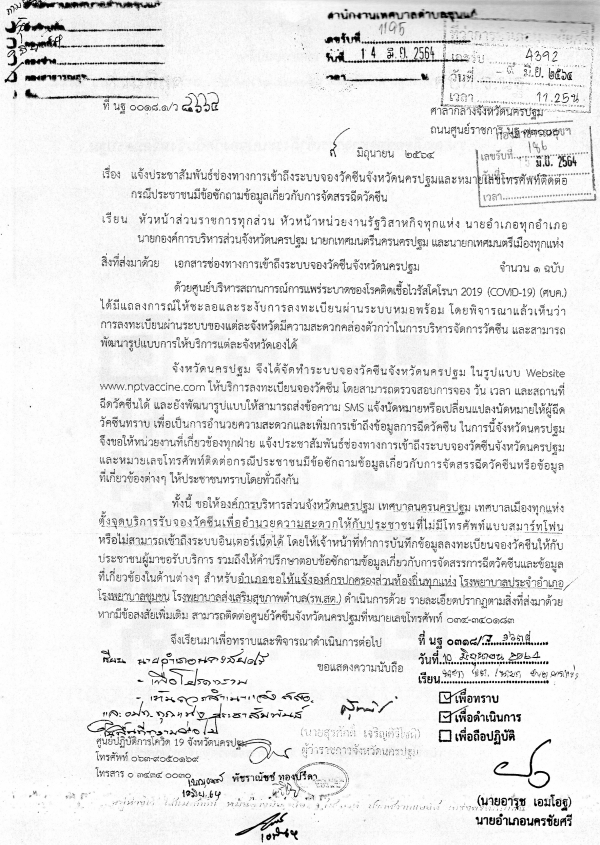 สำนักงานเทศบาลตำบลขุนแก้
เลขรับที่ 1195
วันที่ 14 มิ.ย. 2564
เวลา น.
เลขรับ 4392
วันที่ - ๙ มิ.ย. ๒๕๖๔
เวลา 11.25น
กองช่าง
กองสาธารณสุข
ที่ นฐ ๐๐๑๘.๑/ว
ศาลากลางจังหวัดนครปฐม
ถนนศูนย์ราชการ นฐ
เลขรับที่ 186
วันที่ 15 มิ.ย. 2564
เวลา
มิถุนายน ๒๕๖๔
เรื่อง แจ้งประชาสัมพันธ์ช่องทางการเข้าถึงระบบจองวัคซีนจังหวัดนครปฐมและหมายเลขโทรศัพท์ติดต่อ
กรณีประชาชนมีข้อซักถามข้อมูลเกี่ยวกับการจัดสรรฉีดวัคซีน
เรียน หัวหน้าส่วนราชการทุกส่วน หัวหน้าหน่วยงานรัฐวิสาหกิจทุกแห่ง นายอำเภอทุกอำเภอ
นายกองค์การบริหารส่วนจังหวัดนครปฐม นายกเทศมนตรีนครนครปฐม และนายกเทศมนตรีเมืองทุกแห่ง
สิ่งที่ส่งมาด้วย เอกสารช่องทางการเข้าถึงระบบจองวัคซีนจังหวัดนครปฐม จำนวน ๑ ฉบับ
ด้วยศูนย์บริหารสถานการณ์การแพร่ระบาดของโรคติดเชื้อไวรัสโคโรนา 2019 (COVID-19) (ศบค.)
ได้มีแถลงการณ์ให้ชะลอและระงับการลงทะเบียนผ่านระบบหมอพร้อม โดยพิจารณาแล้วเห็นว่า
การลงทะเบียนผ่านระบบของแต่ละจังหวัดมีความสะดวกคล่องตัวกว่าในการบริหารจัดการวัคซีน และสามารถ
พัฒนารูปแบบการให้บริการแต่ละจังหวัดเองได้
จังหวัดนครปฐม จึงได้จัดทำระบบจองวัคซีนจังหวัดนครปฐม ในรูปแบบ Website
www.nptvaccine.com ให้บริการลงทะเบียนจองวัคซีน โดยสามารถตรวจสอบการจอง วัน เวลา และสถานที่
ฉีดวัคซีนได้ และยังพัฒนารูปแบบให้สามารถส่งข้อความ SMS แจ้งนัดหมายหรือเปลี่ยนแปลงนัดหมายให้ผู้ฉีด
วัคซีนทราบ เพื่อเป็นการอำนวยความสะดวกและเพิ่มการเข้าถึงข้อมูลการฉีดวัคซีน ในการนี้จังหวัดนครปฐม
จึงขอให้หน่วยงานที่เกี่ยวข้องทุกฝ่าย แจ้งประชาสัมพันธ์ช่องทางการเข้าถึงระบบจองวัคซีนจังหวัดนครปฐม
และหมายเลขโทรศัพท์ติดต่อกรณีประชาชนมีข้อซักถามข้อมูลเกี่ยวกับการจัดสรรฉีดวัคซีนหรือข้อมูล
ที่เกี่ยวข้องต่างๆ ให้ประชาชนทราบโดยทั่วถึงกัน
ทั้งนี้ ขอให้องค์การบริหารส่วนจังหวัดนครปฐม เทศบาลนครนครปฐม เทศบาลเมืองทุกแห่ง
ตั้งจุดบริการรับจองวัคซีนเพื่ออำนวยความสะดวกให้กับประชาชนที่ไม่มีโทรศัพท์แบบสมาร์ทโฟน
หรือไม่สามารถเข้าถึงระบบอินเตอร์เน็ตได้ โดยให้เจ้าหน้าที่ทำการบันทึกข้อมูลลงทะเบียนจองวัคซีนให้กับ
ประชาชนผู้มาขอรับบริการ รวมถึงให้คำปรึกษาตอบข้อซักถามข้อมูลเกี่ยวกับการจัดสรรการฉีดวัคซีนและข้อมูล
ที่เกี่ยวข้องในด้านต่างๆ สำหรับอำเภอขอให้แจ้งองค์กรปกครองส่วนท้องถิ่นทุกแห่ง โรงพยาบาลประจำอำเภอ/
โรงพยาบาลชุมชน โรงพยาบาลส่งเสริมสุขภาพตำบล(รพ.สต.) ดำเนินการด้วย รายละเอียดปรากฏตามสิ่งที่ส่งมาด้วย
หากมีข้อสงสัยเพิ่มเติม สามารถติดต่อศูนย์วัคซีนจังหวัดนครปฐมที่หมายเลขโทรศัพท์ ๐๓๔-๓๔๐๑๘๓
จึงเรียนมาเพื่อทราบและพิจารณาดำเนินการต่อไป
ขอแสดงความนับถือ
ที่ นฐ ๐๓๑๘/ว
วันที่ 10 มิถุนายน 2564
เรียน
เพื่อทราบ
เพื่อดำเนินการ
เพื่อถือปฏิบัติ
เรียน นายอำเภอนครชัยศรี
- เพื่อโปรดทราบ
ผู้ว่าราชการจังหวัดนครปฐม
ศูนย์ปฏิบัติการโควิด 19 จังหวัดนครปฐม
โทรศัพท์ ๐๖๓-๙๐๕๐๑๖๙
โทรสาร ๐ ๓๔๓๔ ๐๐๓๐
(นายอารุช เอมโอฐ)
นายอำเภอนครชัยศรี